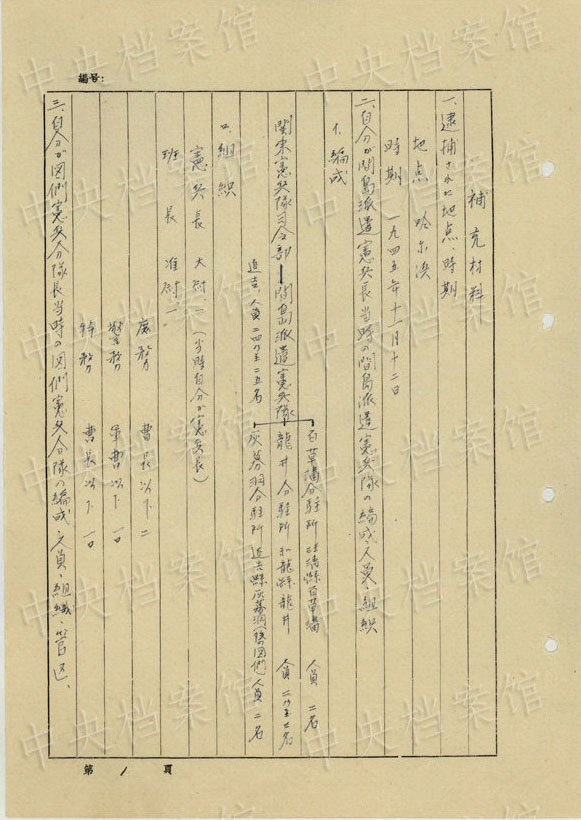 編号:
補充材料
一、逮捕サレタ地点、時期
地点 哈尔浜
時期 一九四五年十一月十二日
二、自分が間島派遣憲兵長当時の間島派遣憲兵隊の編成、人員、組織
1、編成
百草溝分駐所 汪清縣百草溝 人員 二名
関東憲兵隊司令部―間島派遣憲兵隊 龍井分駐所 和龍縣龍井 人員 二乃至三名
延吉 人員二四乃至二五名 灰幕洞分駐所 延吉縣灰幕洞(後の図們)人員 二名
2、組织
憲兵長 大尉 一(当時自分が憲兵長)
班長 准尉 一
庶務 曹長以下 二
警務 軍曹以下 一〇
特務 曹長以下 一〇
三、自分が図們憲兵分隊長当時の図們憲兵分隊の編成、人員、組織、管区、
第 1 頁
中央档案馆